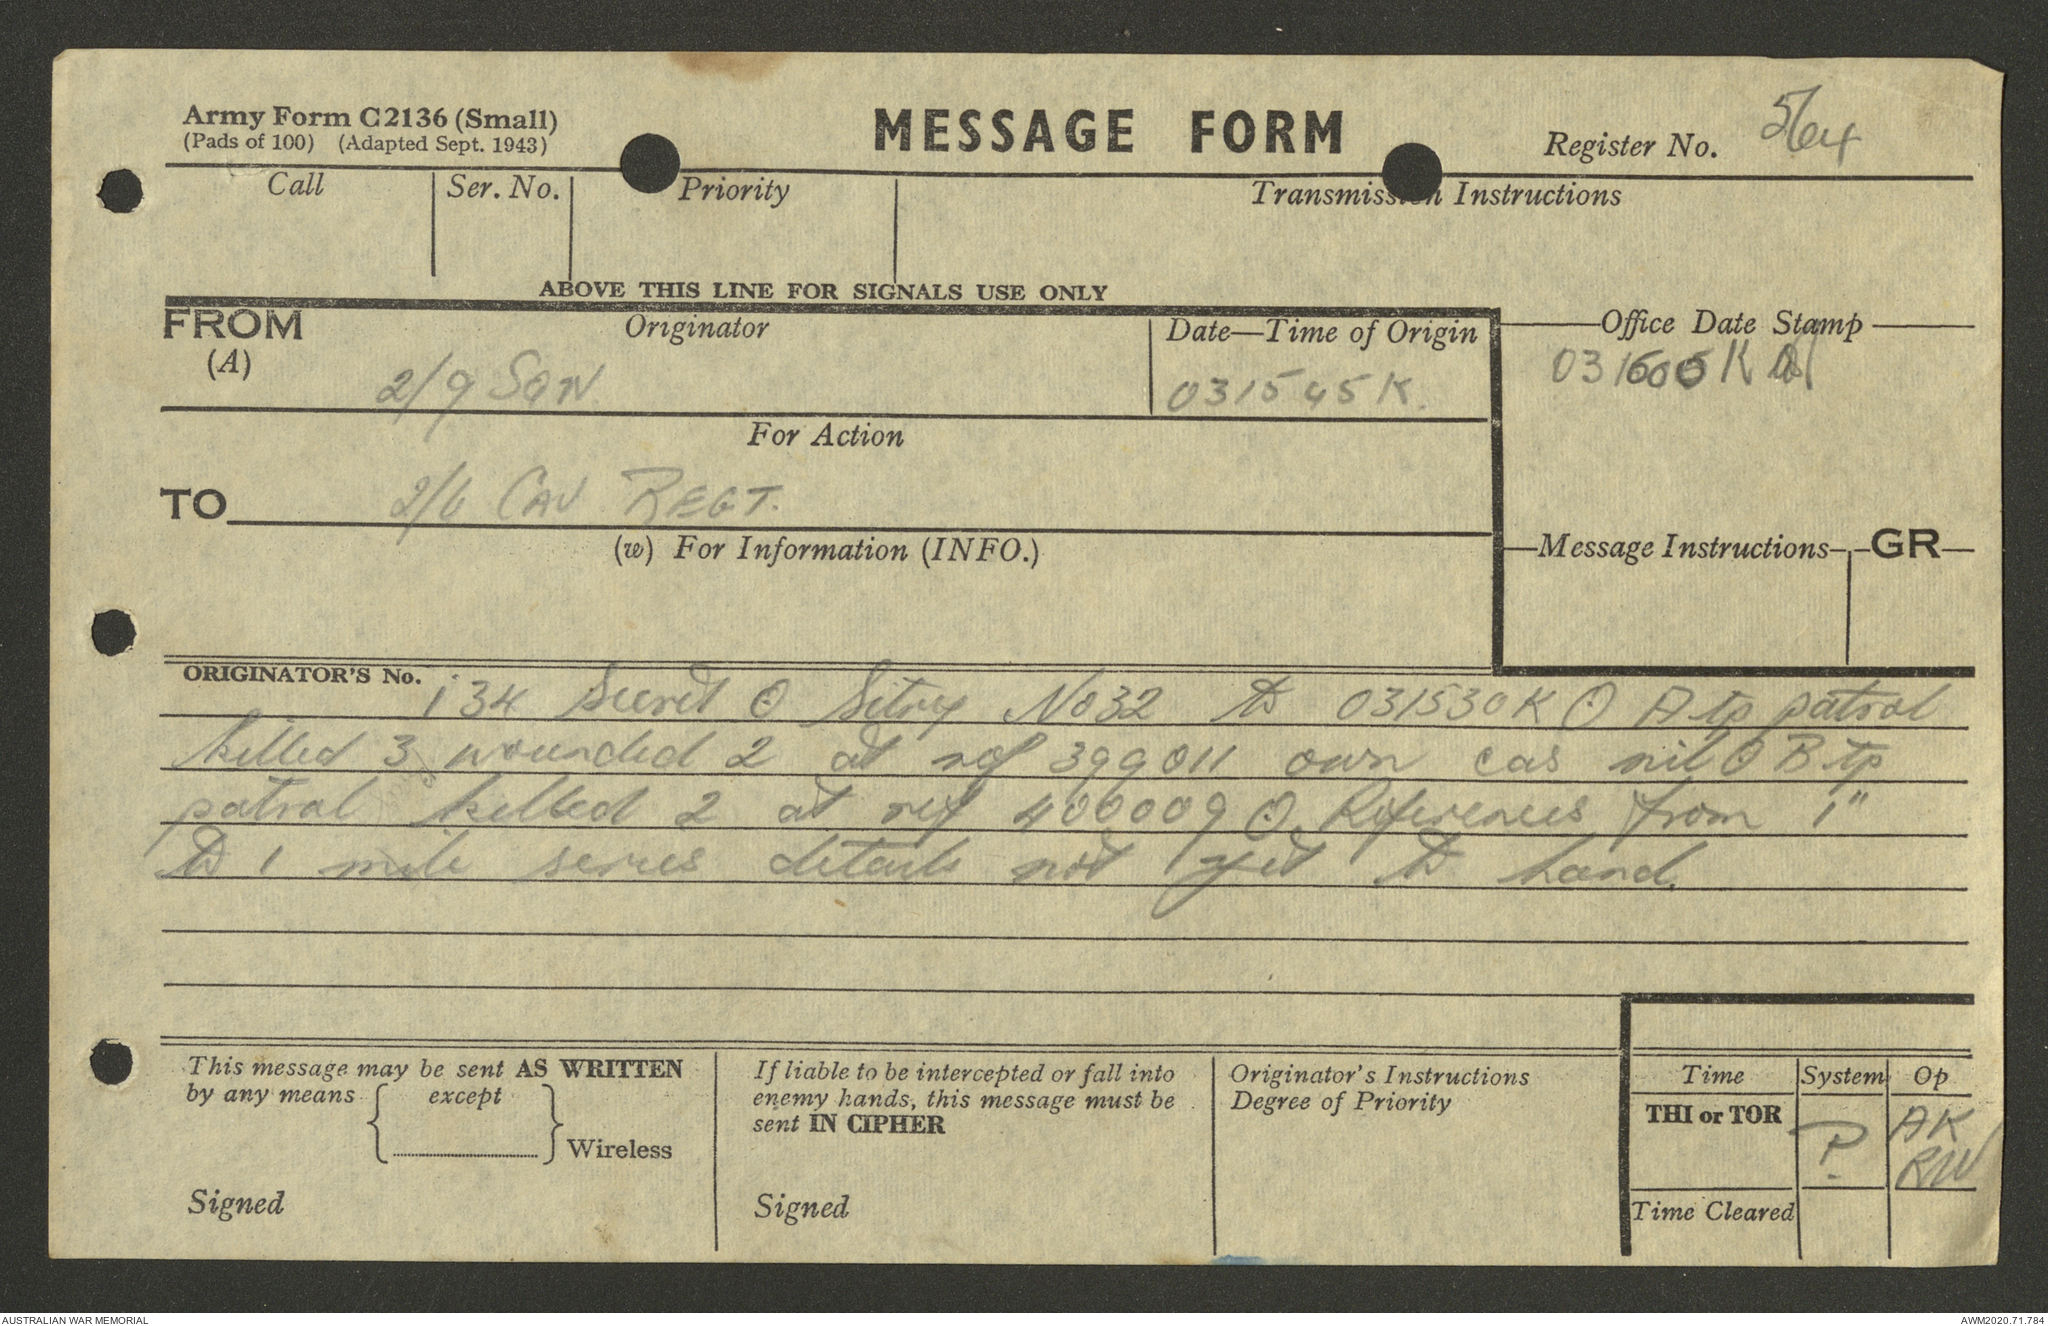 Army Form C2136 (Small)
(Pads of 100) (Adapted Sept. 1943)
MESSAGE FORM
Register No. 564
Call
Ser. No.
Priority
Transmission Instructions
ABOVE THIS LINE FOR SIGNALS USE ONLY
FROM
(A)
Originator
2/9 SQN
Date—Time of Origin
031545K.
Office Date Stamp
031605K
For Action
TO
2/6 CAV REGT.
(w) For Information (INFO.)
Message Instructions
GR
ORIGINATOR'S No.
i34 Secret O Sitrep No32 to 031530K O A tp patrol
killed 3 wounded 2 at ref 399011 own cas nil O B tp
patrol killed 2 at ref 400009 O References from 1"
to 1 mile series details not yet to hand.
This message may be sent AS WRITTEN
by any means except
Wireless
Signed
If liable to be intercepted or fall into
enemy hands, this message must be
sent IN CIPHER
Signed
Originator's Instructions
Degree of Priority
Time
System
Op
THI or TOR
P
AK
RW
Time Cleared
AUSTRALIAN WAR MEMORIAL
AWM2020.71.784